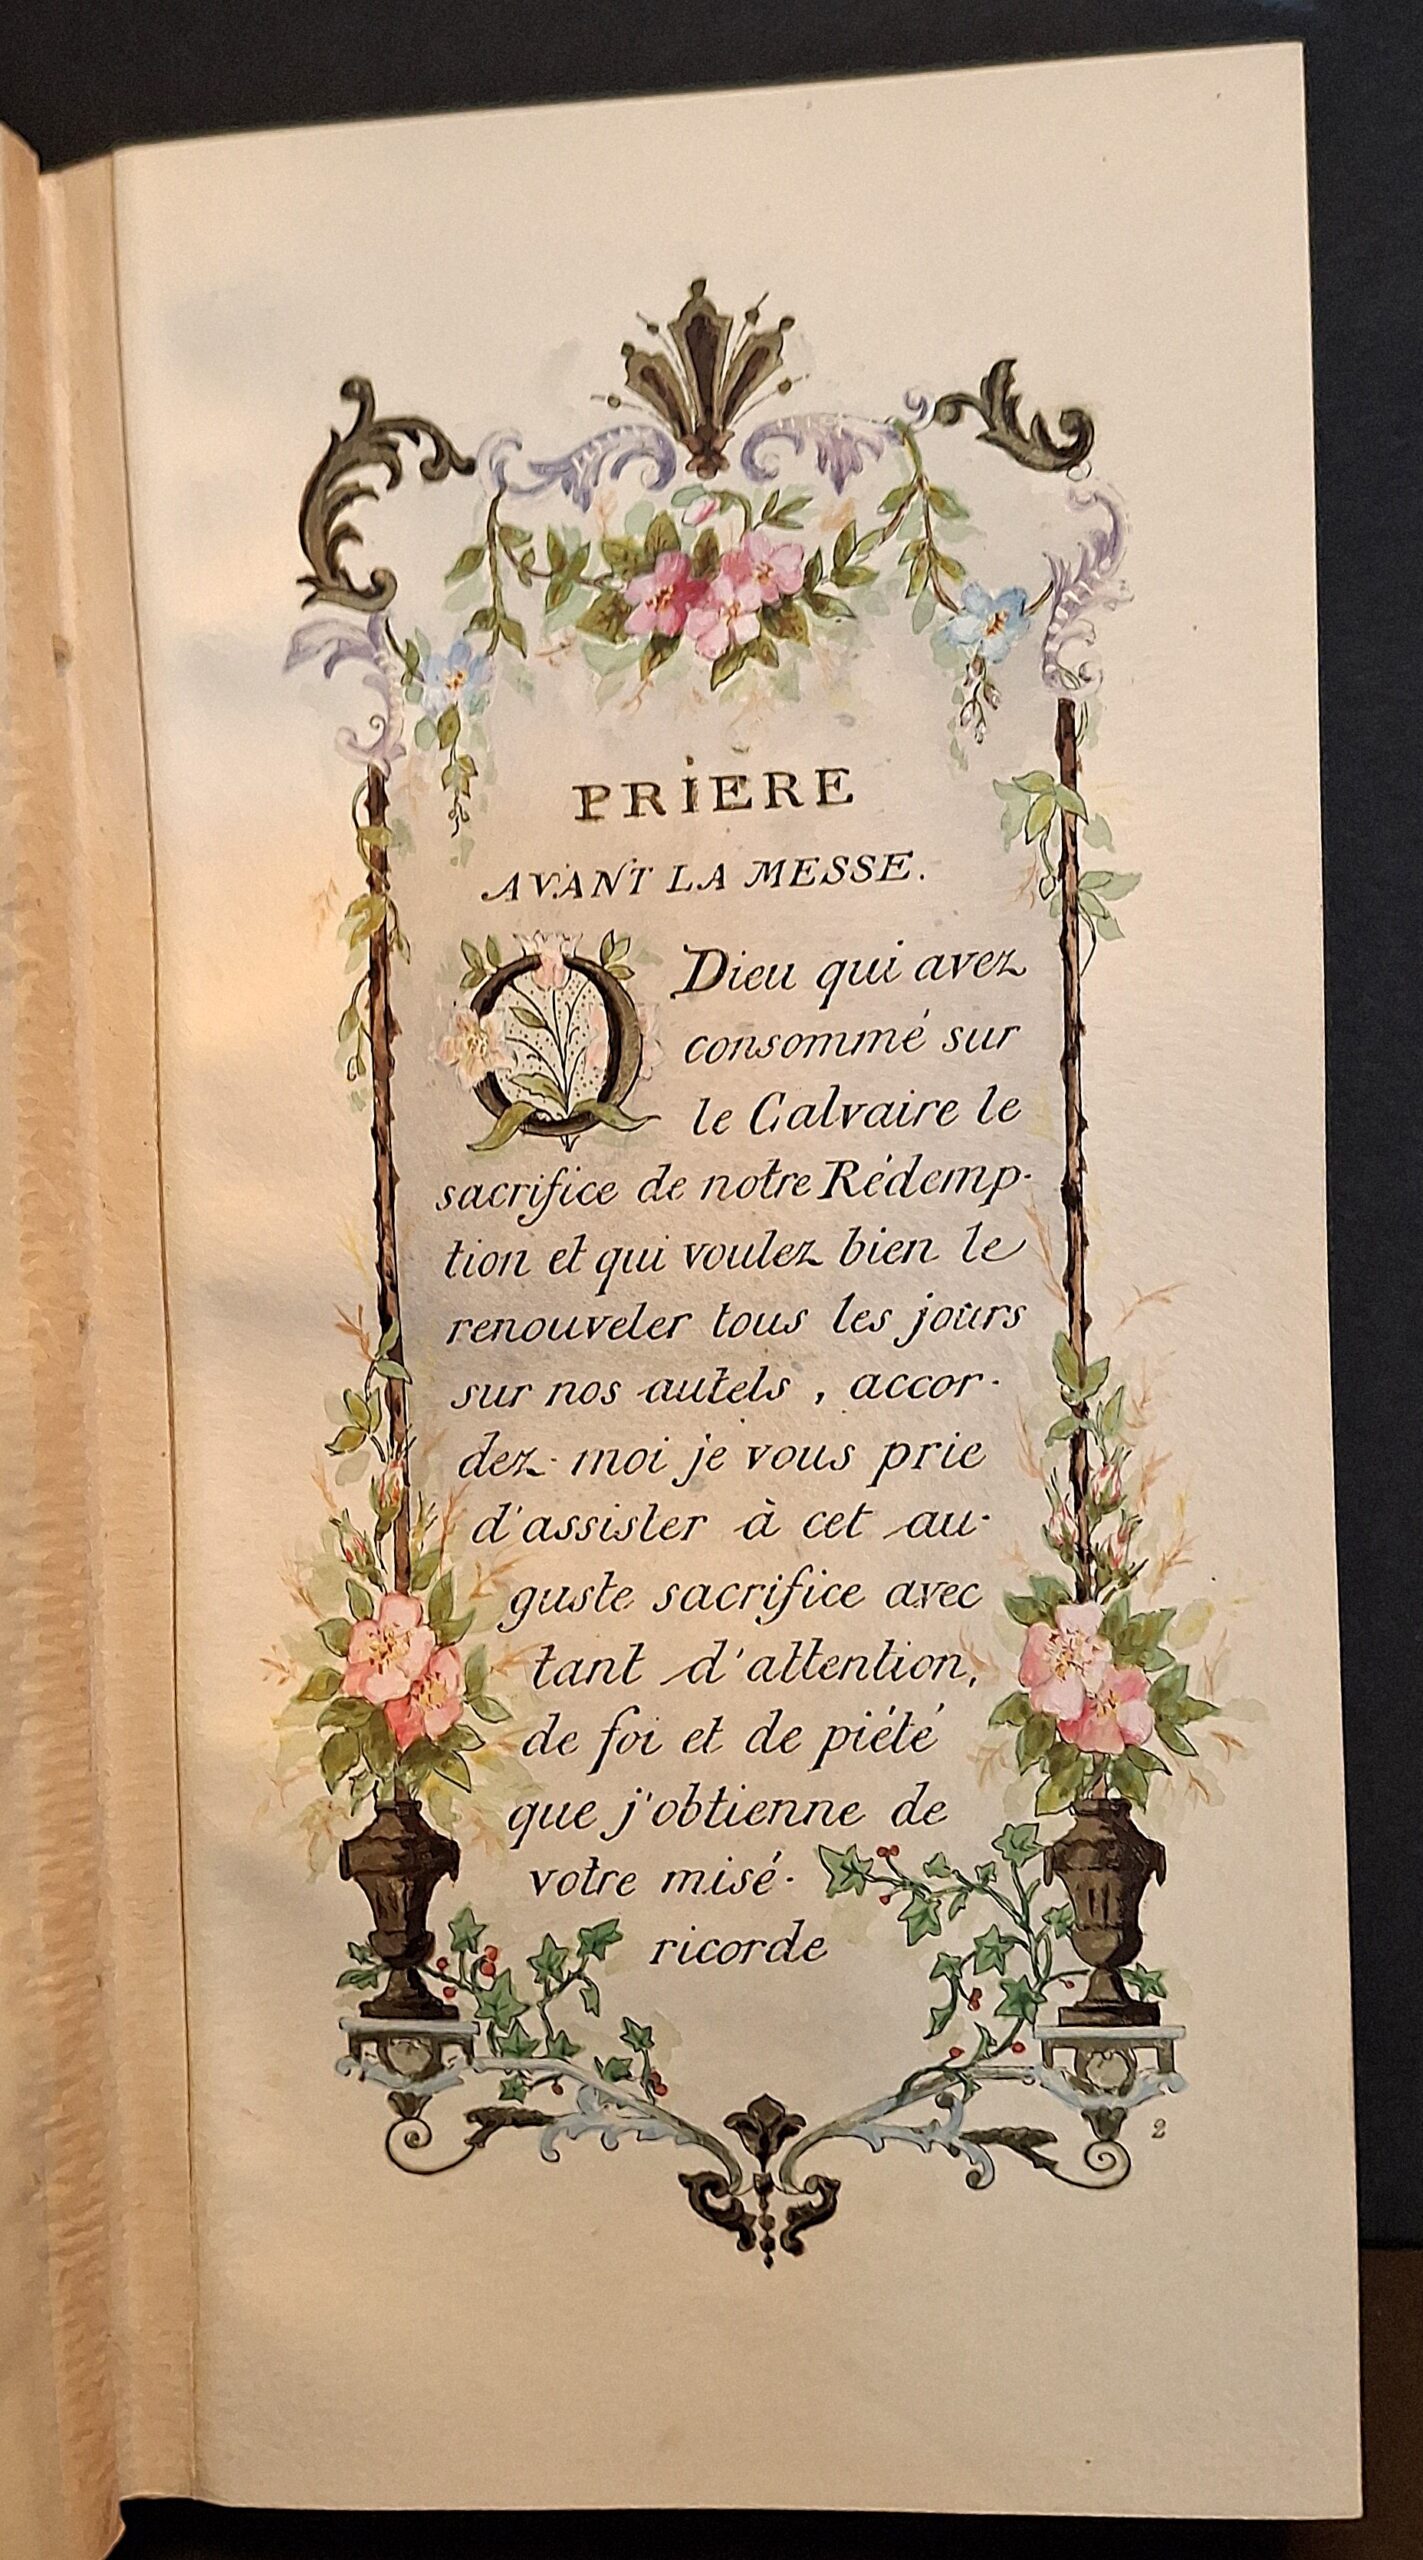 PRIÈRE
AVANT LA MESSE.
O Dieu qui avez
consommé sur
le Calvaire le
sacrifice de notre Rédemp-
tion et qui voulez bien le
renouveler tous les jours
sur nos autels, accor-
dez-moi je vous prie
d'assister à cet au-
guste sacrifice avec
tant d'attention,
de foi et de piété
que j'obtienne de
votre misé-
ricorde
2